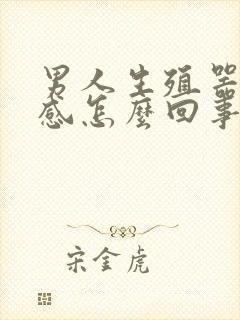 男人生殖器
感怎麼回事
宋金虎